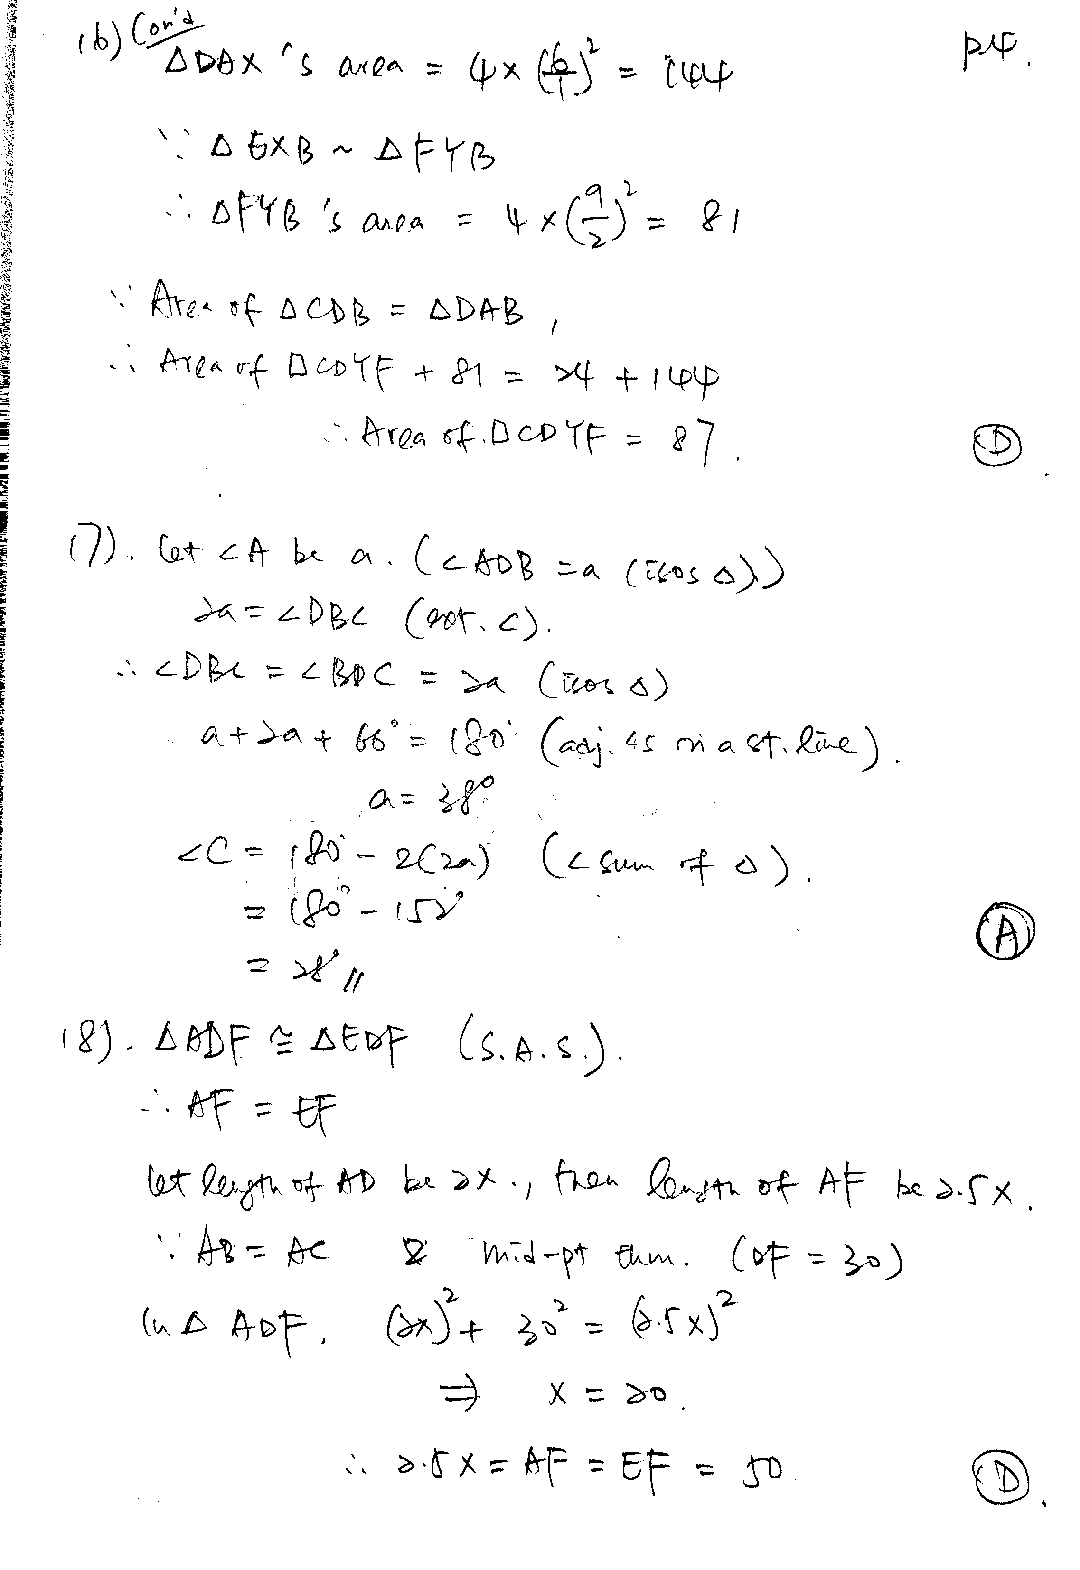 16) Con'd
p4.
ΔDAX 's area = 4 × (6/1)² = 144
∵ ΔEXB ~ ΔFYB
∴ ΔFYB 's area = 4 × (9/2)² = 81
∵ Area of ΔCDB = ΔDAB,
∴ Area of □CDYF + 81 = 24 + 144
∴ Area of □CDYF = 87.
(D).
17). Let ∠A be a. (∠ADB = a (isos Δ))
2a = ∠DBC (ext. ∠).
∴ ∠DBC = ∠BDC = 2a (isos Δ)
a + 2a + 66° = 180° (adj. ∠s on a st. line).
a = 38°
∠C = 180° - 2(2a) (∠ sum of Δ).
= 180° - 152°
= 28° //
(A)
18). ΔADF ≅ ΔEDF (S.A.S.).
∴ AF = EF
Let length of AD be 2x., then length of AF be 2.5x.
∵ AB = AC & mid-pt thm. (DF = 30)
In Δ ADF, (2x)² + 30² = (2.5x)²
⇒ x = 20.
∴ 2.5x = AF = EF = 50
(D).